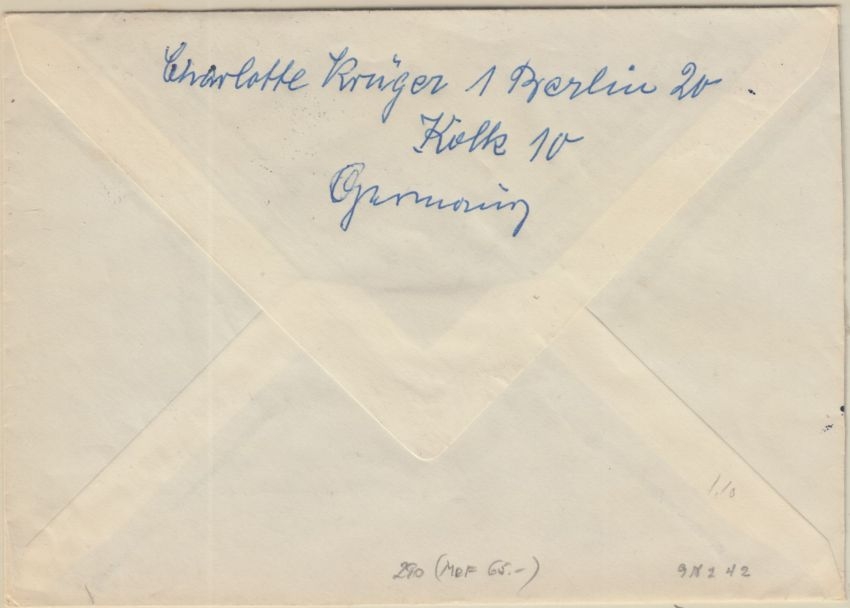 Charlotte Krüger 1 Berlin 20
Kolk 10
Germany
290 (MeF 65.-)
9N242